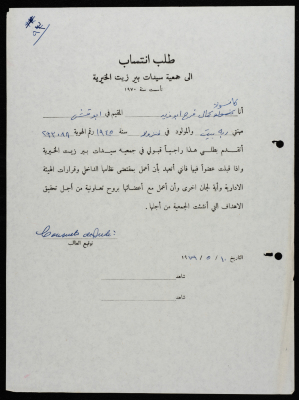 طلب انتساب
الى جمعية سيدات بير زيت الخيرية
تأسست سنة ١٩٧٠
انا كمال فرح المقيم في ابو قش
مهنتي ربة بيت والمولود في سنة ١٩٢٥ رقم الهوية
أتقدم بطلبي هذا راجياً قبولي في جمعية سيدات بير زيت الخيرية
واذا قبلت عضواً فيها فاني أتعهد بأن أعمل بمقتضى نظامها الداخل وقرارات الهيئة
الادارية وأية لجان اخرى وأن أعمل مع أعضائها بروح تعاونية من أجل تحقيق
الاهداف التي أنشئت الجمعية من أجلها .
توقيع الطالب
التاريخ ١٠ / ٥ / ١٩٧٩
شاهد
شاهد